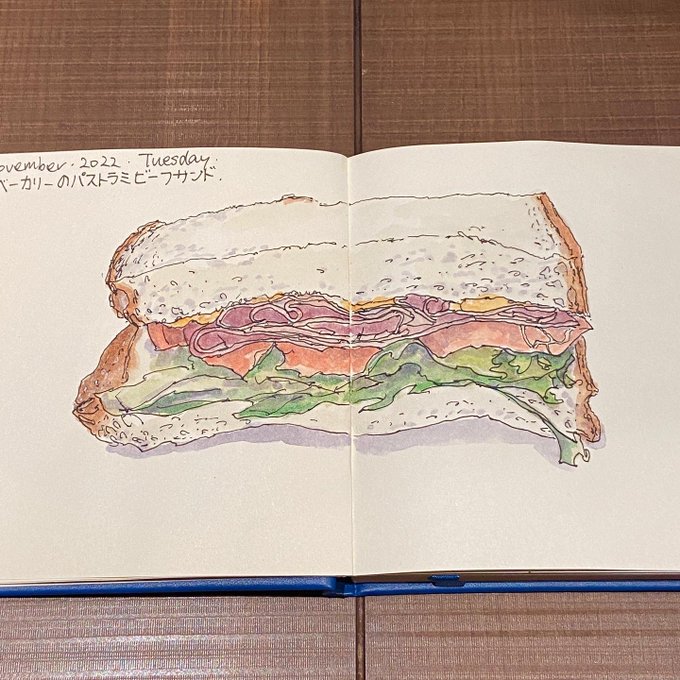 ovember. 2022. Tuesday.
ベーカリーのパストラミビーフサンド.